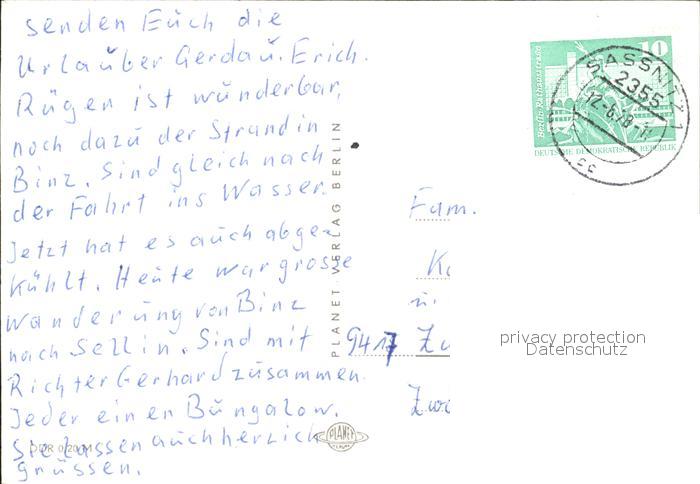 senden Euch die
Urlauber Gerda u. Erich.
Rügen ist wunderbar,
noch dazu der Strand in
Binz. Sind gleich nach
der Fahrt ins Wasser.
Jetzt hat es auch abge-
kühlt. Heute war grosse
Wanderung von Binz
nach Sellin. Sind mit
Richter Gerhard zusammen.
Jeder einen Bungalow.
Sie lassen auch herzlich
grüssen.
PLANET-VERLAG BERLIN
PLANET
Berlin Rathausstraße
10
DEUTSCHE DEMOKRATISCHE REPUBLIK
SASSNITZ 1
2355
Fam.
u.
9417 Zw
privacy protection
Datenschutz